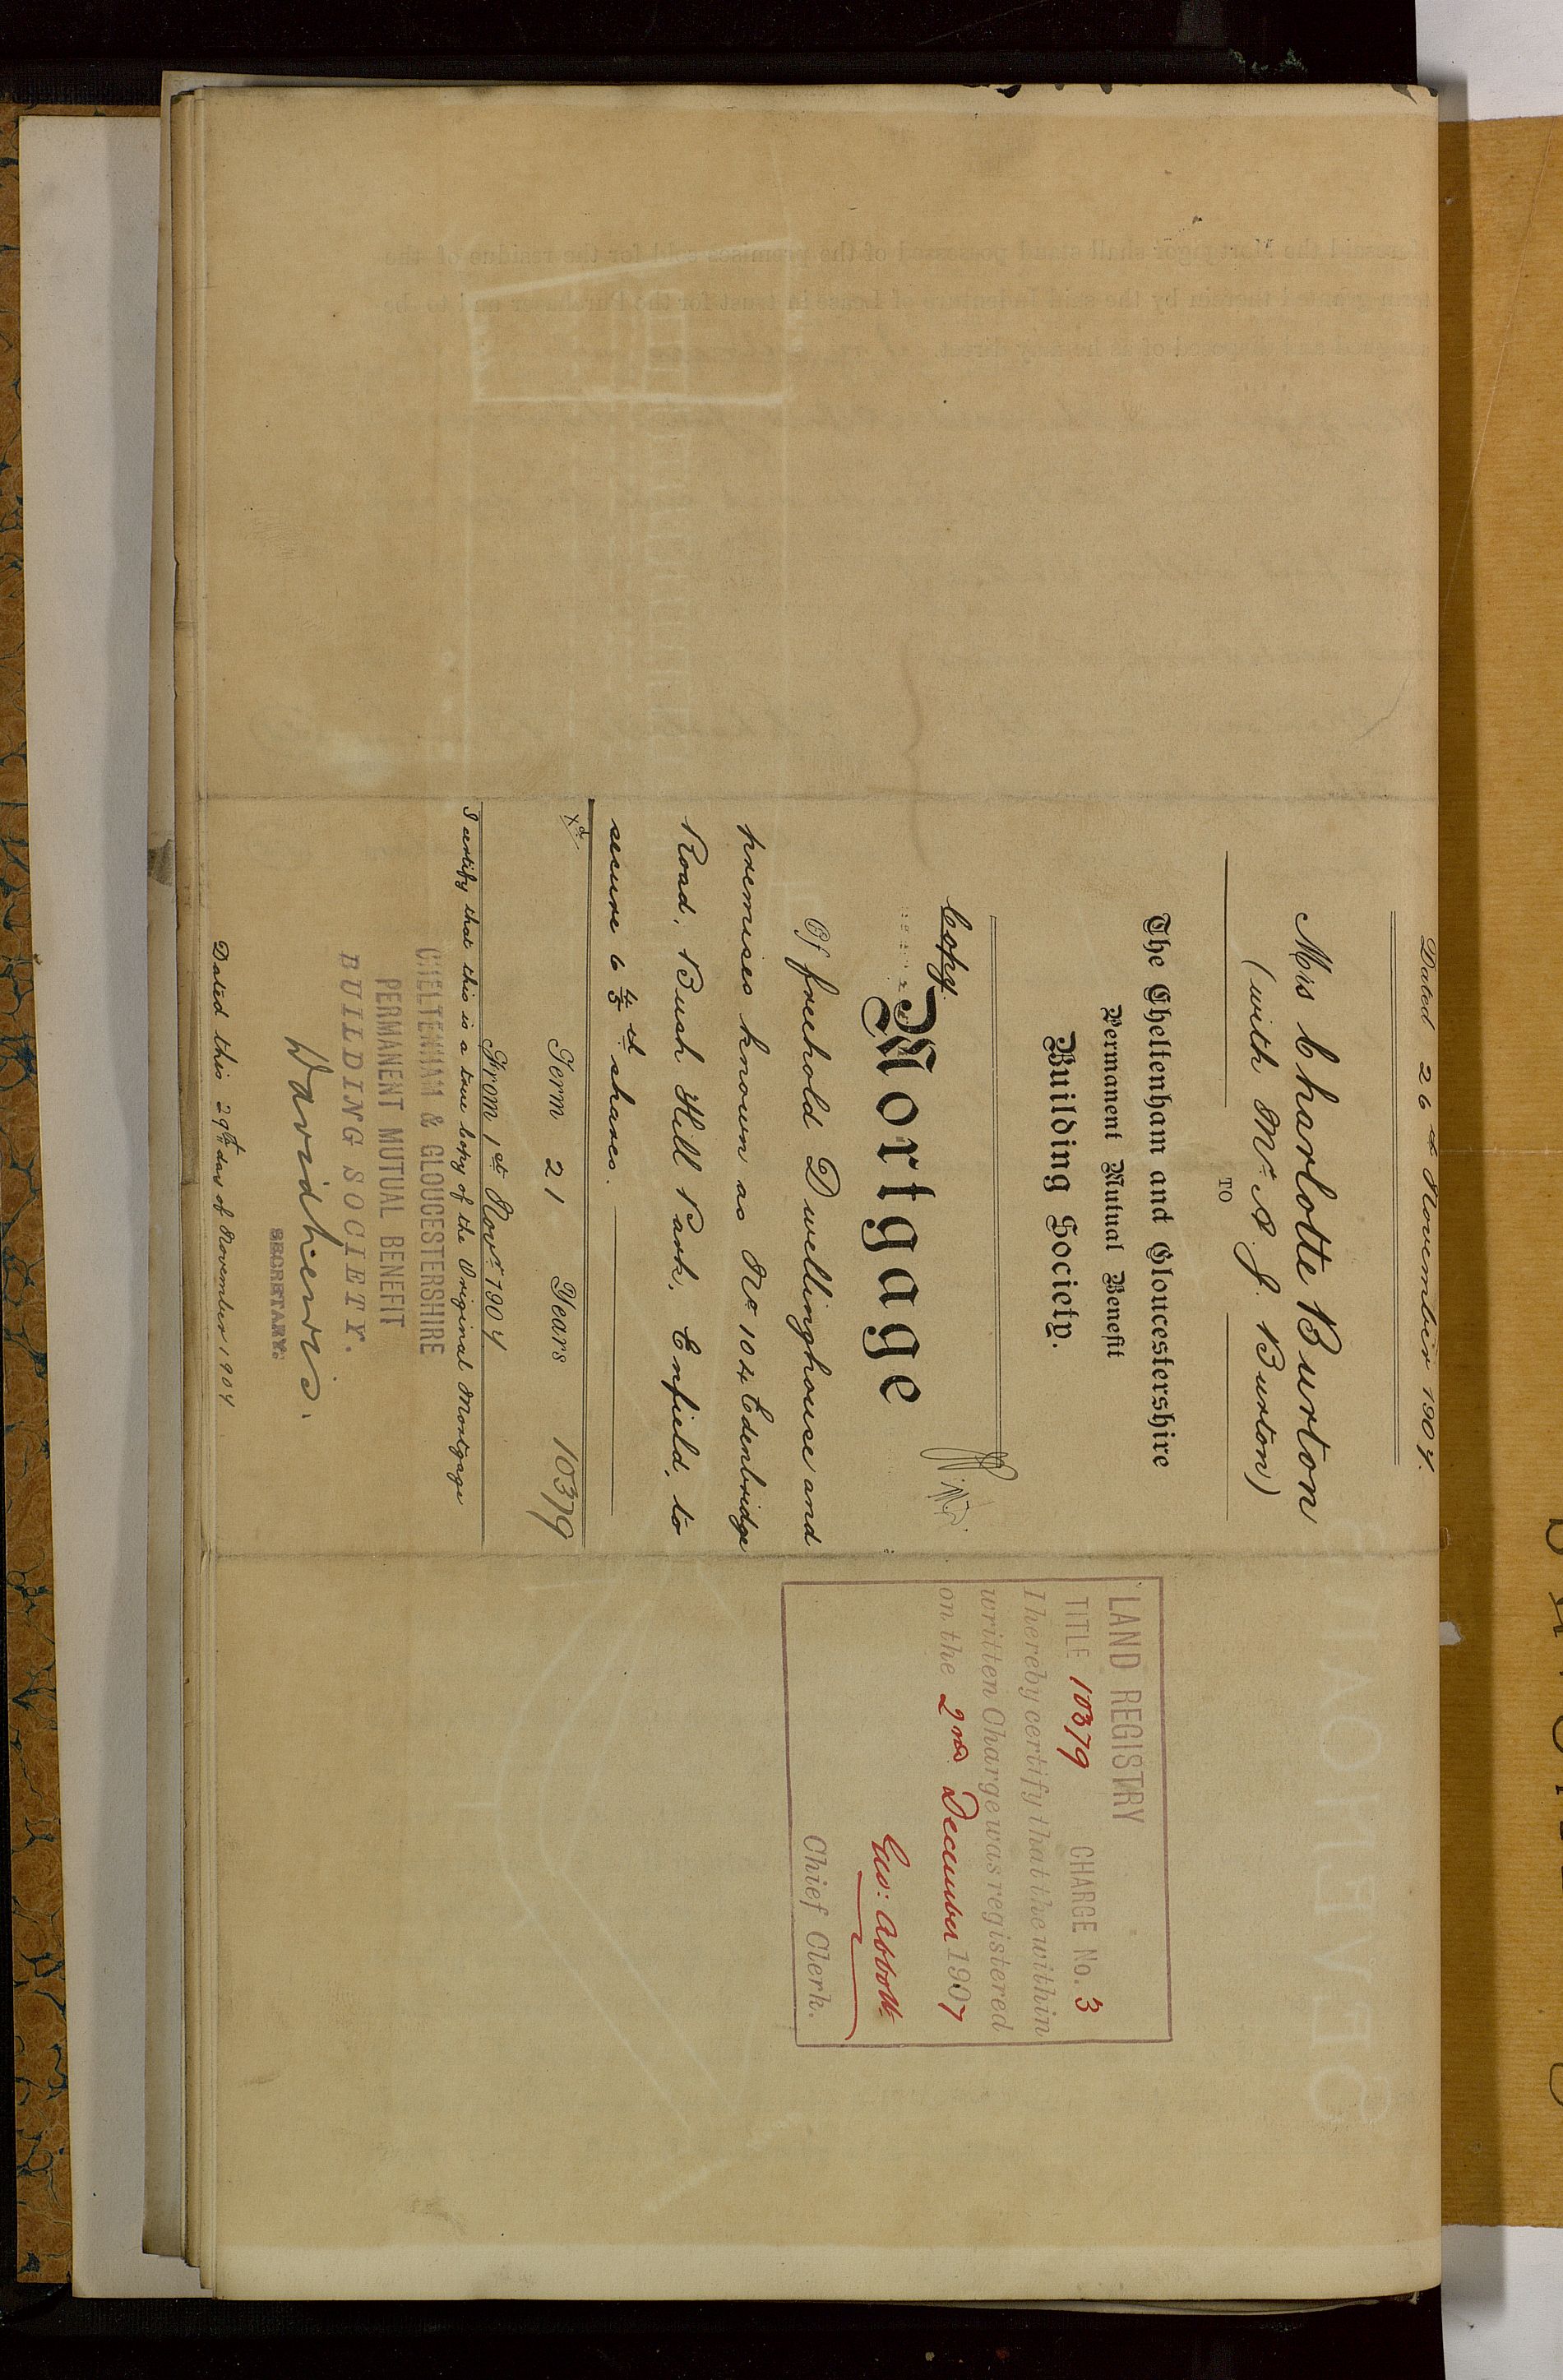 Dated 26th November 1904.
Mrs Charlotte Burton
(with Mr A. J. Burton)
TO
The Cheltenham and Gloucestershire
Permanent Mutual Benefit
Building Society.
Copy
Mortgage
Of freehold Dwellinghouse and
premises known as No 104 Edenbridge
Road, Bush Hill Park, Enfield, to
secure 6 4/5 th shares.
Term 21 Years
10379
From 1st Novr 1904
I certify that this is a true Copy of the Original Mortgage
CHELTENHAM & GLOUCESTERSHIRE
PERMANENT MUTUAL BENEFIT
BUILDING SOCIETY.
SECRETARY.
Dated this 29th day of November 1904
LAND REGISTRY
TITLE 10379 CHARGE No. 3
I hereby certify that the within
written Charge was registered
on the 2nd December 1907
Geo: Abbott
Chief Clerk.